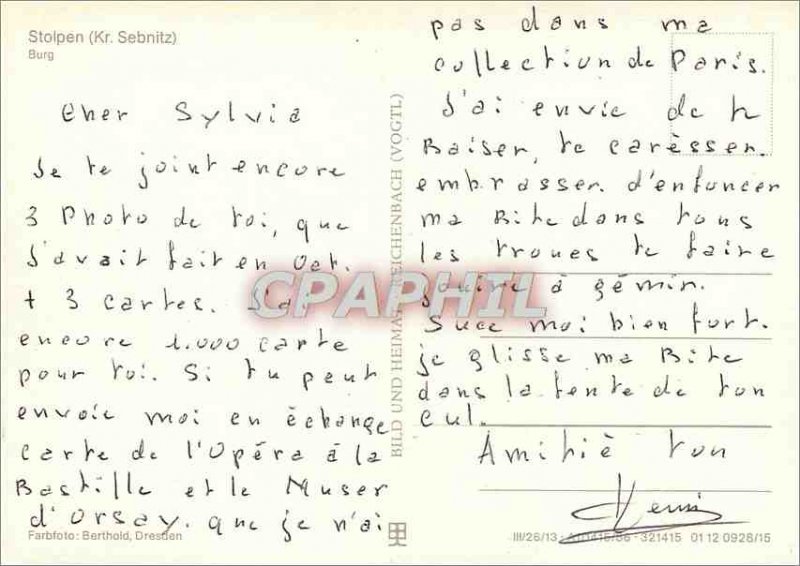 Stolpen (Kr. Sebnitz)
Burg
Cher Sylvia
Je te joint encore
3 Photo de toi, que
J'avait fait en Oct.
+ 3 cartes. J'ai
encore 1.000 carte
pour toi. Si tu peut
envoie moi en échange
carte de l'Opéra à la
Bastille et le Muser
d'Orsay. que je n'ai
Farbfoto: Berthold, Dresden
BILD UND HEIMAT REICHENBACH (VOGTL)
pas dans ma
collection de Paris.
J'ai envie de
Baiser, te carèsser.
embrasser. d'enfoncer
ma Bite dans tous
les troues te faire
jouire à gémir.
Suce moi bien fort.
je glisse ma Bite
dans la fente de ton
cul.
Amitiè ton
III/26/13 321415 01 12 0926/15
CPAPHIL